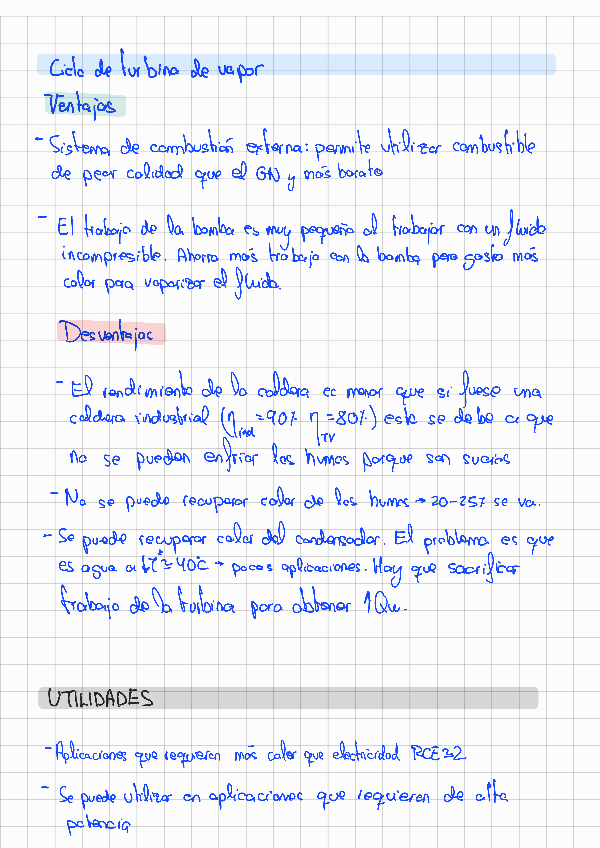 Ciclo de turbina de vapor
Ventajas
- Sistema de combustión externa: permite utilizar combustible
de peor calidad que el GN y más barato
- El trabajo de la bomba es muy pequeño al trabajar con un fluido
incompresible. Ahorro más trabajo con la bomba pero gasto más
calor para vaporizar el fluido.
Desventajas
- El rendimiento de la caldera es menor que si fuese una
caldera industrial (η ind = 90% η TV = 80%) esto se debe a que
no se pueden enfriar los humos porque son sucios
- No se puede recuperar calor de los humos → 20-25% se va.
- Se puede recuperar calor del condensador. El problema es que
es agua a ↓Tª ≃ 40°C → pocas aplicaciones. Hay que sacrificar
trabajo de la turbina para obtener ↑Qu.
UTILIDADES
- Aplicaciones que requieren más calor que electricidad RCE≥2
- Se puede utilizar en aplicaciones que requieren de alta
potencia